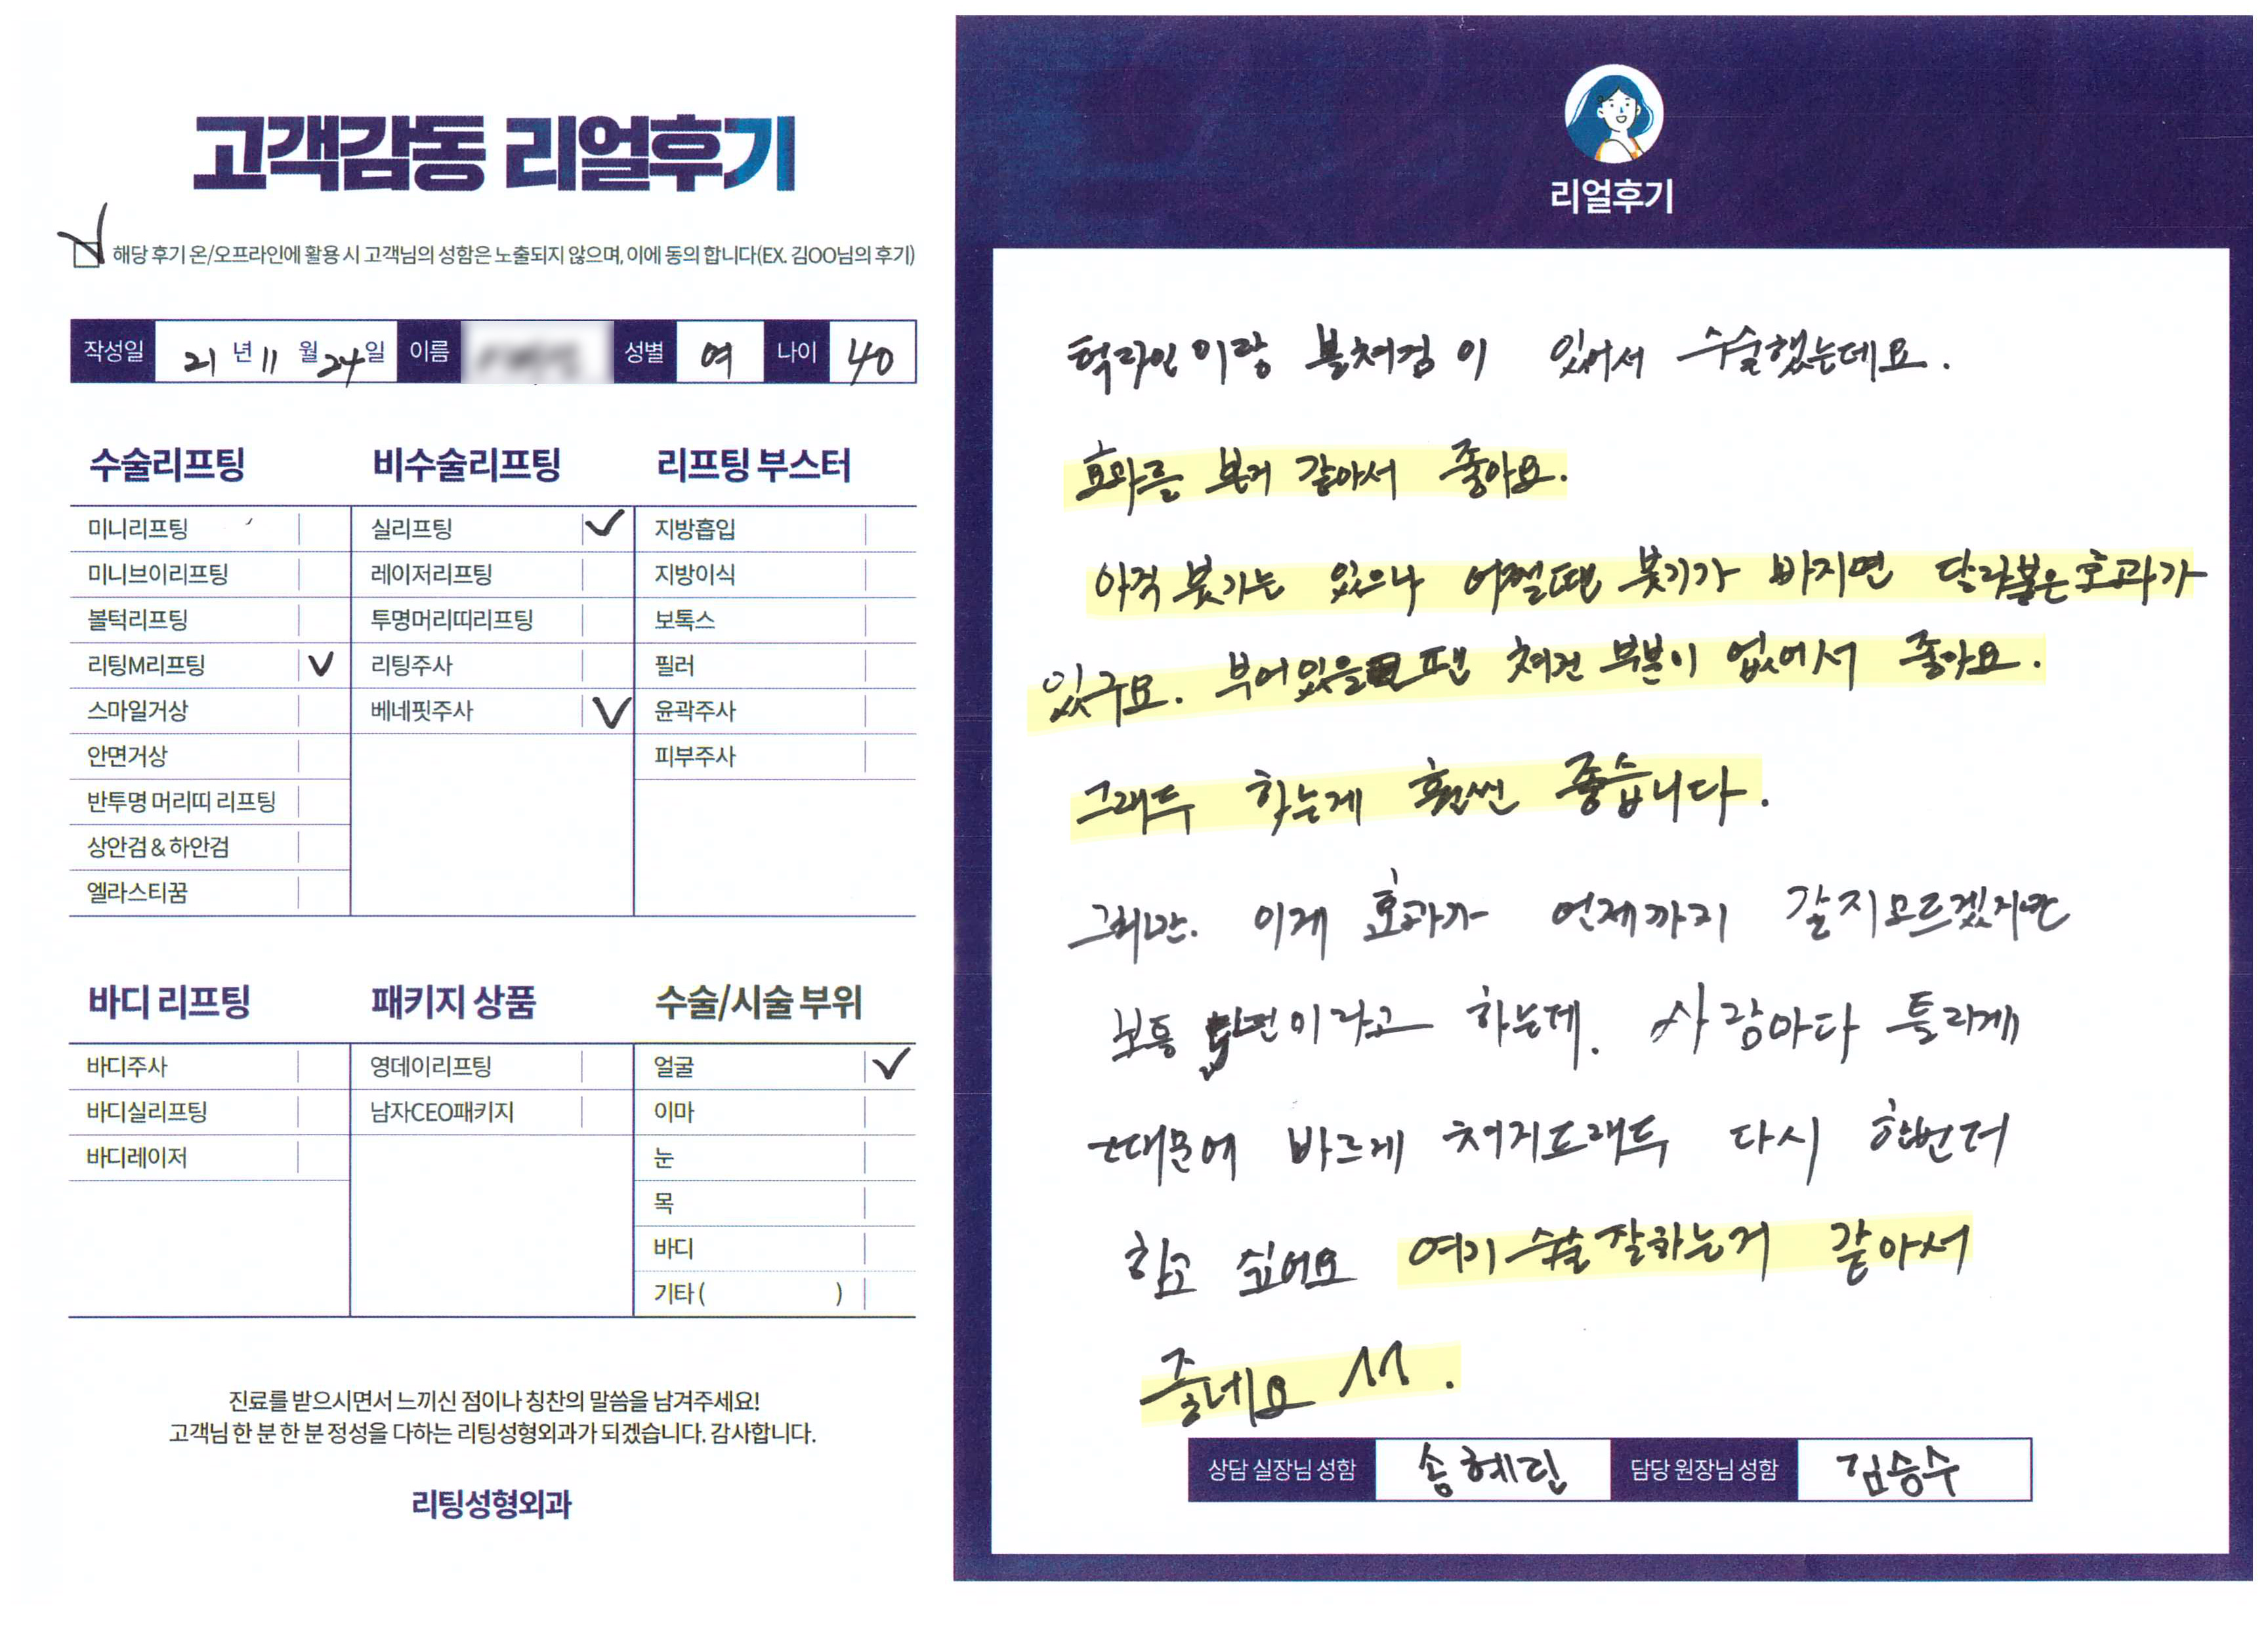 고객감동 리얼후기
해당 후기 온/오프라인에 활용 시 고객님의 성함은 노출되지 않으며, 이에 동의 합니다(EX. 김OO님의 후기)
작성일 21 년 11 월 24 일 이름 성별 여 나이 40
수술리프팅
미니리프팅
미니브이리프팅
볼턱리프팅
리팅M리프팅
스마일거상
안면거상
반투명 머리띠 리프팅
상안검 & 하안검
엘라스티꿈
비수술리프팅
실리프팅
레이저리프팅
투명머리띠리프팅
리팅주사
베네핏주사
리프팅 부스터
지방흡입
지방이식
보톡스
필러
윤곽주사
피부주사
바디 리프팅
바디주사
바디실리프팅
바디레이저
패키지 상품
영데이리프팅
남자CEO패키지
수술/시술 부위
얼굴
이마
눈
목
바디
기타 ( )
진료를 받으시면서 느끼신 점이나 칭찬의 말씀을 남겨주세요!
고객님 한 분 한 분 정성을 다하는 리팅성형외과가 되겠습니다. 감사합니다.
리팅성형외과
리얼후기
턱라인이랑 볼쳐짐이 있어서 수술했는데요.
효과를 본거 같아서 좋아요.
아직 붓기는 있으나 어쩔땐 붓기가 빠지면 달라붙은 효과가
있구요. 부어있을 땐 쳐진 부분이 없어서 좋아요.
그래두 하는게 훨씬 좋습니다.
그러나. 이게 효과가 언제까지 갈지모르겠지만
보통 이라고 하는데. 사람마다 틀리게
때문에 빠르게 쳐지도래두 다시 한번더
하고 싶어요 여기 수술잘하는거 같아서
좋네요 ^^.
상담 실장님 성함 송혜린 담당 원장님 성함 김승수